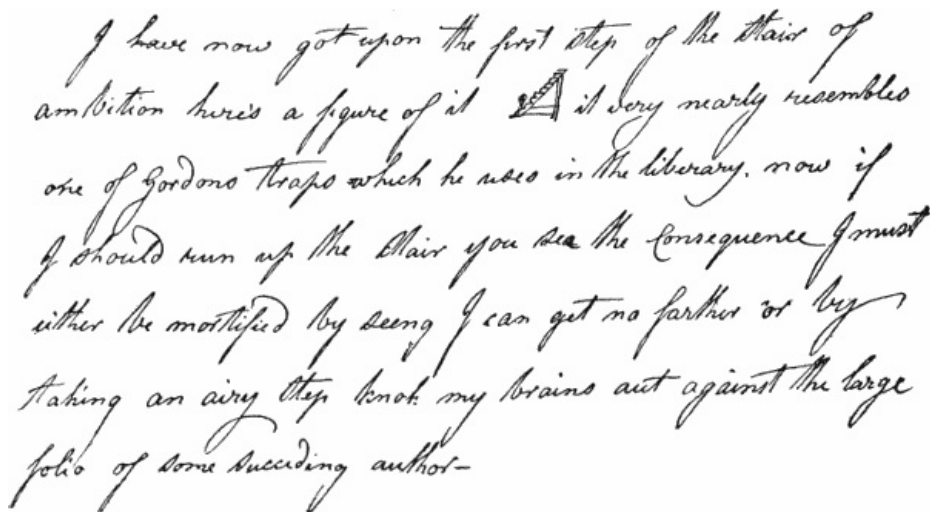 I have now got upon the first step of the stair of
ambition here's a figure of it it very nearly resembles
one of Gordons traps which he uses in the liberary. now if
I should run up the stair you see the Consequence I must
either be mortified by seeng I can get no farther or by
taking an airy step knok my brains out against the large
folio of some succeding author—